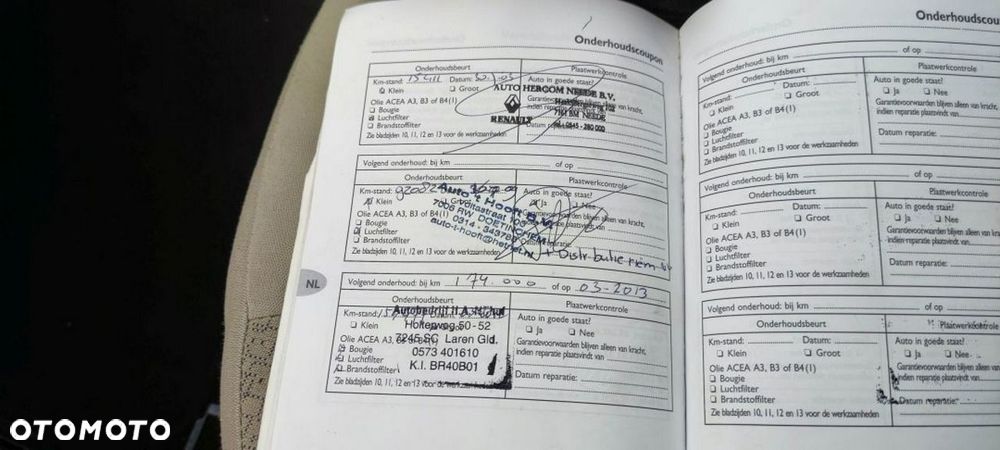 Onderhoudscoupon
Onderhoudsbeurt
Plaatwerkcontrole
Km-stand: Datum:
Klein Groot
Olie ACEA A3, B3 of B4(1)
Bougie
Luchtfilter
Brandstoffilter
Zie bladzijden 10, 11, 12 en 13 voor de werkzaamheden
Auto in goede staat?
AUTO HERCOM NEEDE B.V.
RENAULT
7161 BM NEEDE
tel.: 0545 - 280 000
Volgend onderhoud: bij km of op
Onderhoudsbeurt
Plaatwerkcontrole
Km-stand: Datum:
Klein
Olie ACEA A3, B3 of B4(1)
Bougie
Luchtfilter
Brandstoffilter
Zie bladzijden 10, 11, 12 en 13 voor de werkzaamheden
Auto in goede staat?
Ja Nee
Auto 't Hooft B.V.
Voltastraat
7006 RW DOETINCHEM
0314 -
auto-t-hooft@hetnet.nl
+ Distributie riem
NL
Volgend onderhoud: bij km 174.000 of op 03-2013
Onderhoudsbeurt
Plaatwerkcontrole
Km-stand:
Klein
Olie ACEA A3, B3
Bougie
Luchtfilter
Brandstoffilter
Zie bladzijden 10, 11, 12 en 13 voor de werkzaamheden
Autobedrijf
Holterweg 50 - 52
7245 SC Laren Gld.
0573 401610
K.I. BR40B01
Auto in goede staat?
Ja Nee
Garantievoorwaarden blijven alleen van kracht,
indien reparatie plaatsvindt van
Datum reparatie:
Onderhoudscoupon
Volgend onderhoud: bij km of op
Onderhoudsbeurt
Plaatwerkcontrole
Km-stand: Datum:
Klein Groot
Olie ACEA A3, B3 of B4(1)
Bougie
Luchtfilter
Brandstoffilter
Zie bladzijden 10, 11, 12 en 13 voor de werkzaamheden
Auto in goede staat?
Ja Nee
Garantievoorwaarden blijven alleen van kracht,
indien reparatie plaatsvindt van
Datum reparatie:
Volgend onderhoud: bij km of op
Onderhoudsbeurt
Plaatwerkcontrole
Km-stand: Datum:
Klein Groot
Olie ACEA A3, B3 of B4(1)
Bougie
Luchtfilter
Brandstoffilter
Zie bladzijden 10, 11, 12 en 13 voor de werkzaamheden
Auto in goede staat?
Ja Nee
Garantievoorwaarden blijven alleen van kracht,
indien reparatie plaatsvindt van
Datum reparatie:
Volgend onderhoud: bij km of op
Onderhoudsbeurt
Plaatwerkcontrole
Km-stand: Datum:
Klein Groot
Olie ACEA A3, B3 of B4(1)
Bougie
Luchtfilter
Brandstoffilter
Zie bladzijden 10, 11, 12 en 13 voor de werkzaamheden
Auto in goede staat?
Ja Nee
Garantievoorwaarden blijven alleen van kracht,
indien reparatie plaatsvindt van
Datum reparatie:
OTOMOTO